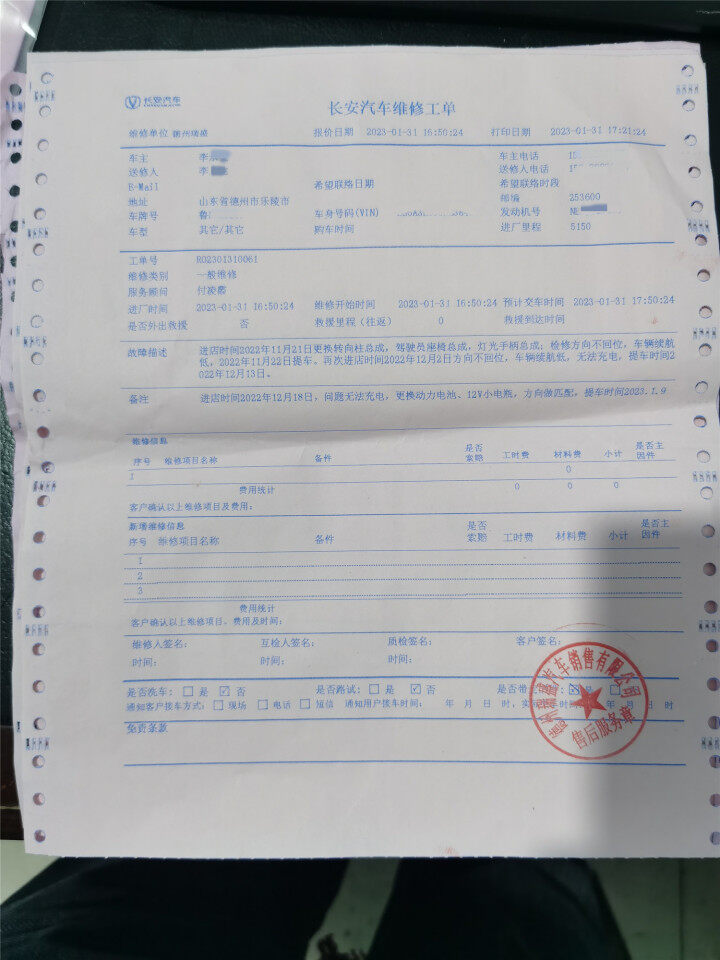 长安汽车
长安汽车维修工单
维修单位 德州瑞盛 报价日期 2023-01-31 16:50:24 打印日期 2023-01-31 17:21:24
车主 李 车主电话 15
送修人 李 送修人电话 15
E-Mail 希望联络日期 希望联络时段
地址 山东省德州市乐陵市 邮编 253600
车牌号 鲁 车身号码(VIN) 发动机号
车型 其它/其它 购车时间 进厂里程 5150
工单号 RO2301310061
维修类别 一般维修
服务顾问 付凌霞
进厂时间 2023-01-31 16:50:24 维修开始时间 2023-01-31 16:50:24 预计交车时间 2023-01-31 17:50:24
是否外出救援 否 救援里程(往返) 0 救援到达时间
故障描述 进店时间2022年11月21日更换转向柱总成，驾驶员座椅总成，灯光手柄总成，检修方向不回位，车辆续航
低，2022年11月22日提车。再次进店时间2022年12月2日方向不回位，车辆续航低，无法充电，提车时间2
022年12月13日。
备注 进店时间2022年12月18日，问题无法充电，更换动力电池、12V小电瓶，方向做匹配，提车时间2023.1.9
维修信息
序号 维修项目名称 备件 是否索赔 工时费 材料费 小计 是否主因件
1 0
费用统计 0 0 0
客户确认以上维修项目及费用:
新增维修信息
序号 维修项目名称 备件 是否索赔 工时费 材料费 小计 是否主因件
1
2
3
费用统计
客户确认以上维修项目，费用及时间:
维修人签名: 互检人签名: 质检签名: 客户签名:
时间: 时间: 时间:
是否洗车: □ 是 ☑ 否 是否路试: □ 是 ☑ 否 是否带
通知客户接车方式: □ 现场 □ 电话 □ 短信 通知用户接车时间: 年 月 日 时，实 年 月 日 时
免责条款
德州瑞盛汽车销售有限公司
售后服务章